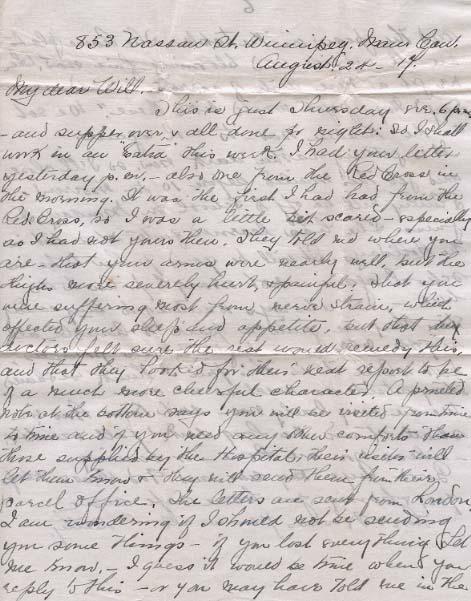 853 Nassau St. Winnipeg. Man. Can.
August. 24 - 17.
My dear Will.
This is just Thursday eve. 6 p.m.
- and supper over, & all done so right. So I shall
work in an "Extra" this week. I had your letter
yesterday p.m. - also one from the Red Cross in
the morning. It was the first I had had from the
Red Cross, so I was a little bit scared - especially
as I had not yours then. They told me where you
are - that your arms were nearly well, but the
thighs more severely hurt & painful. That you
were suffering most from nerve strain, which
affected your sleep and appetite. but that the
doctors felt sure the rest would remedy this,
and that they looked for their next report to be
of a much more cheerful character. A printed
note at the bottom says you will be visited from time
to time and if you need any other comforts than
those supplied by the Hospital, their visitor will
let them know & they will send them from their
parcel office. The letters are sent from London
I am wondering if I should not be sending
you some things - if you lost everything. Let
me know. - I guess it would be time when you
reply to this - or you may have told me in the